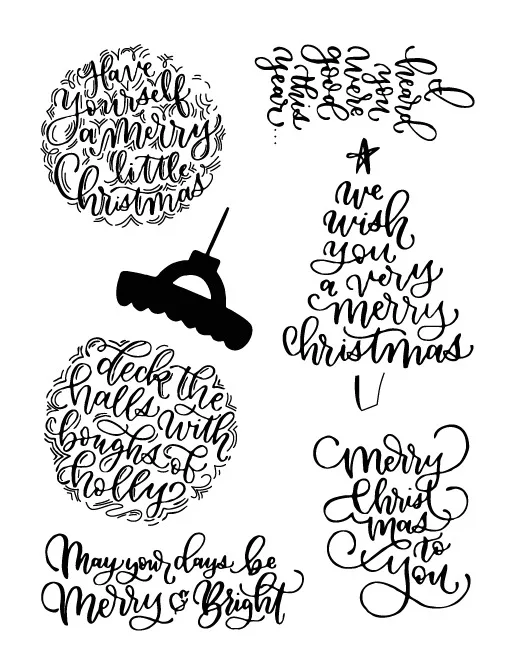 Have
yourself
a merry
little
Christmas
I
heard
you
were
good
this
year...
we
wish
you
a very
merry
christmas
deck the
halls with
boughs of
holly
Merry
Christ
mas
to
you
May your days be
Merry & Bright